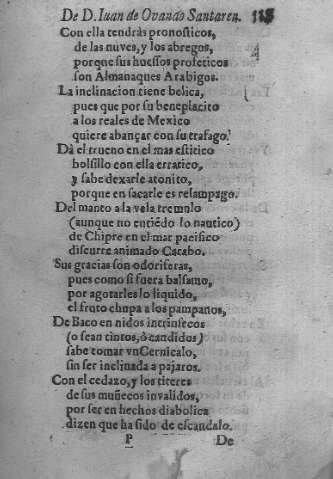 De D. Iuan de Ovando Santaren.
Con ella tendràs pronosticos,
de las nuves, y los abregos,
porque sus huessos profeticos
son Almanaques Arabigos.
La inclinacion tiene belica,
pues que por su beneplacito
a los reales de Mexico
quiere abançar con su trafago.
Dà el trueno en el mas estitico
bolsillo con ella erratico,
y sabe dexarle atonito,
porque en sacarle es relampago.
Del manto a la vela tremulo
(aunque no entiẽdo lo nautico)
de Chipre en el mar pacifico
discurre animado Carabo.
Sus gracias son odoriferas,
pues como si fuera balsamo,
por agotarles lo liquido,
el fruto chupa a los pampanos,
De Baco en nidos intrinsecos
(o sean tintos, ò candidos)
sabe tomar vn Cernicalo,
sin ser inclinada a pajaros.
Con el cedazo, y los titeres
de sus muñecos invalidos,
por ser en hechos diabolica
dizen que ha sido de escandalo.
P De